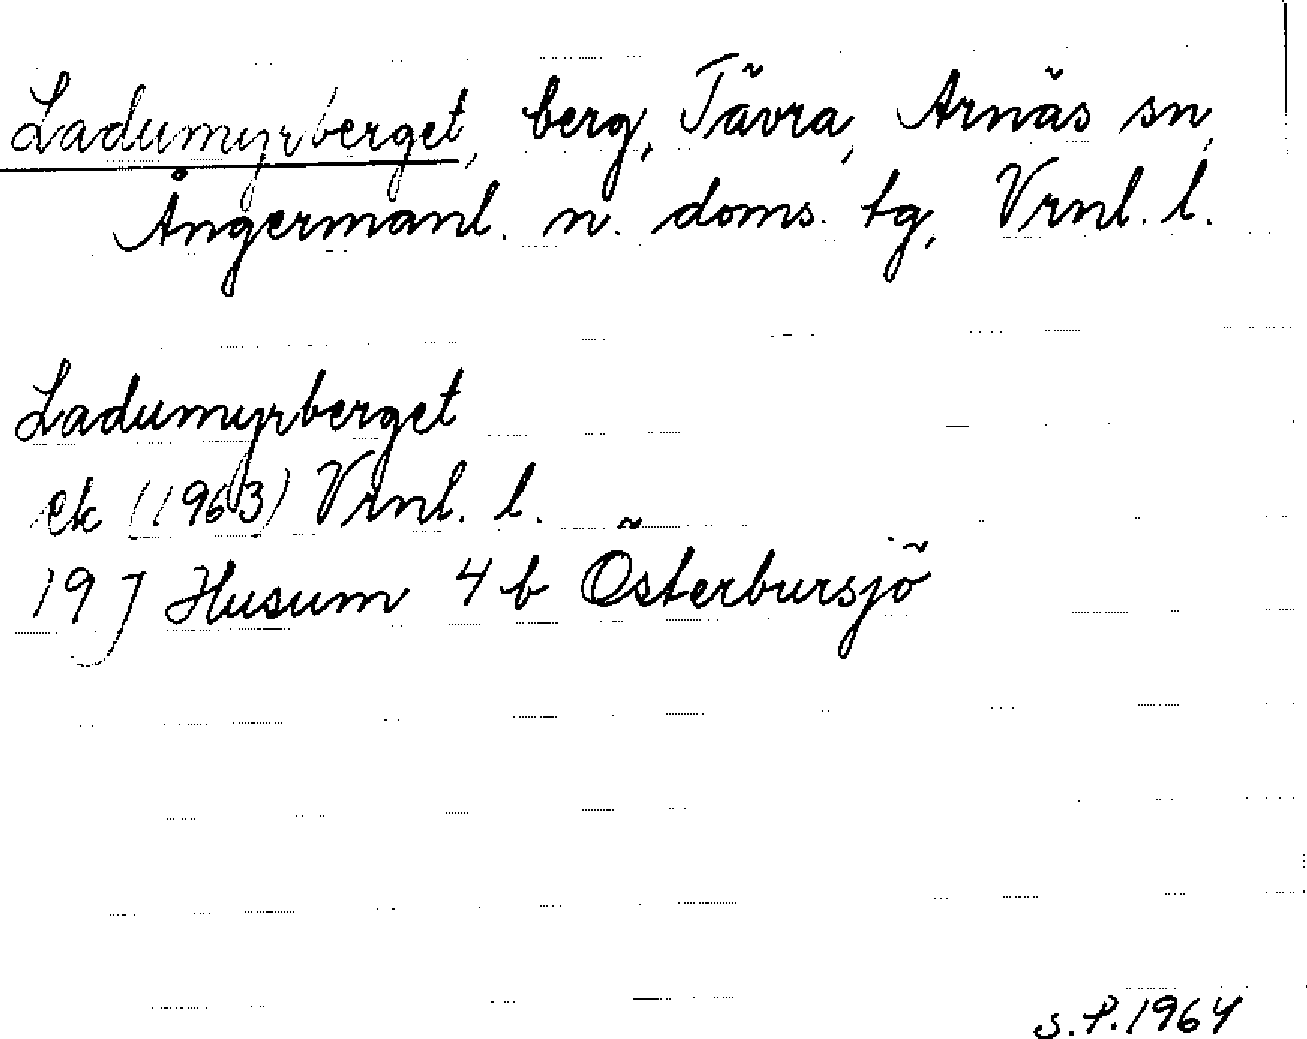 Ladumyrberget, berg, Tävra, Arnäs sn,
Ångermanl. n. doms. tg, Vrnl. l.
Ladumyrberget
ek (1963) Vrnl. l.
19 J Husum 4 b Österbursjö
S.P. 1964